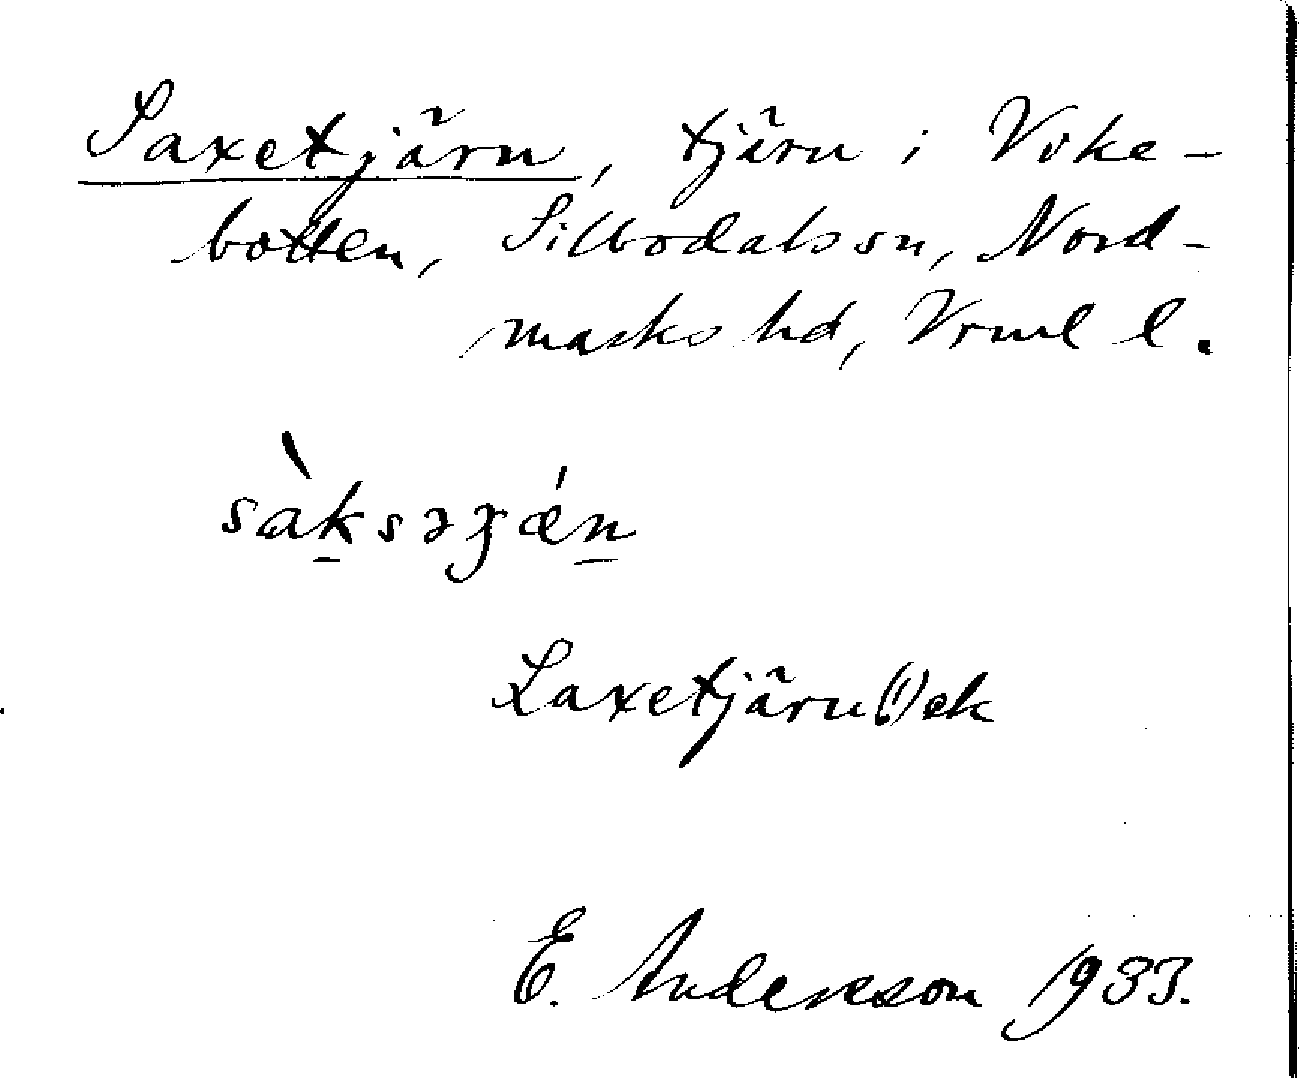 Saxetjärn, tjärn i Vike-
botten, Silbodals sn, Nord-
marks hd, Vrml l.
sàksəɟǽn
Laxetjärn(!) ek
E. Andersson 1933.